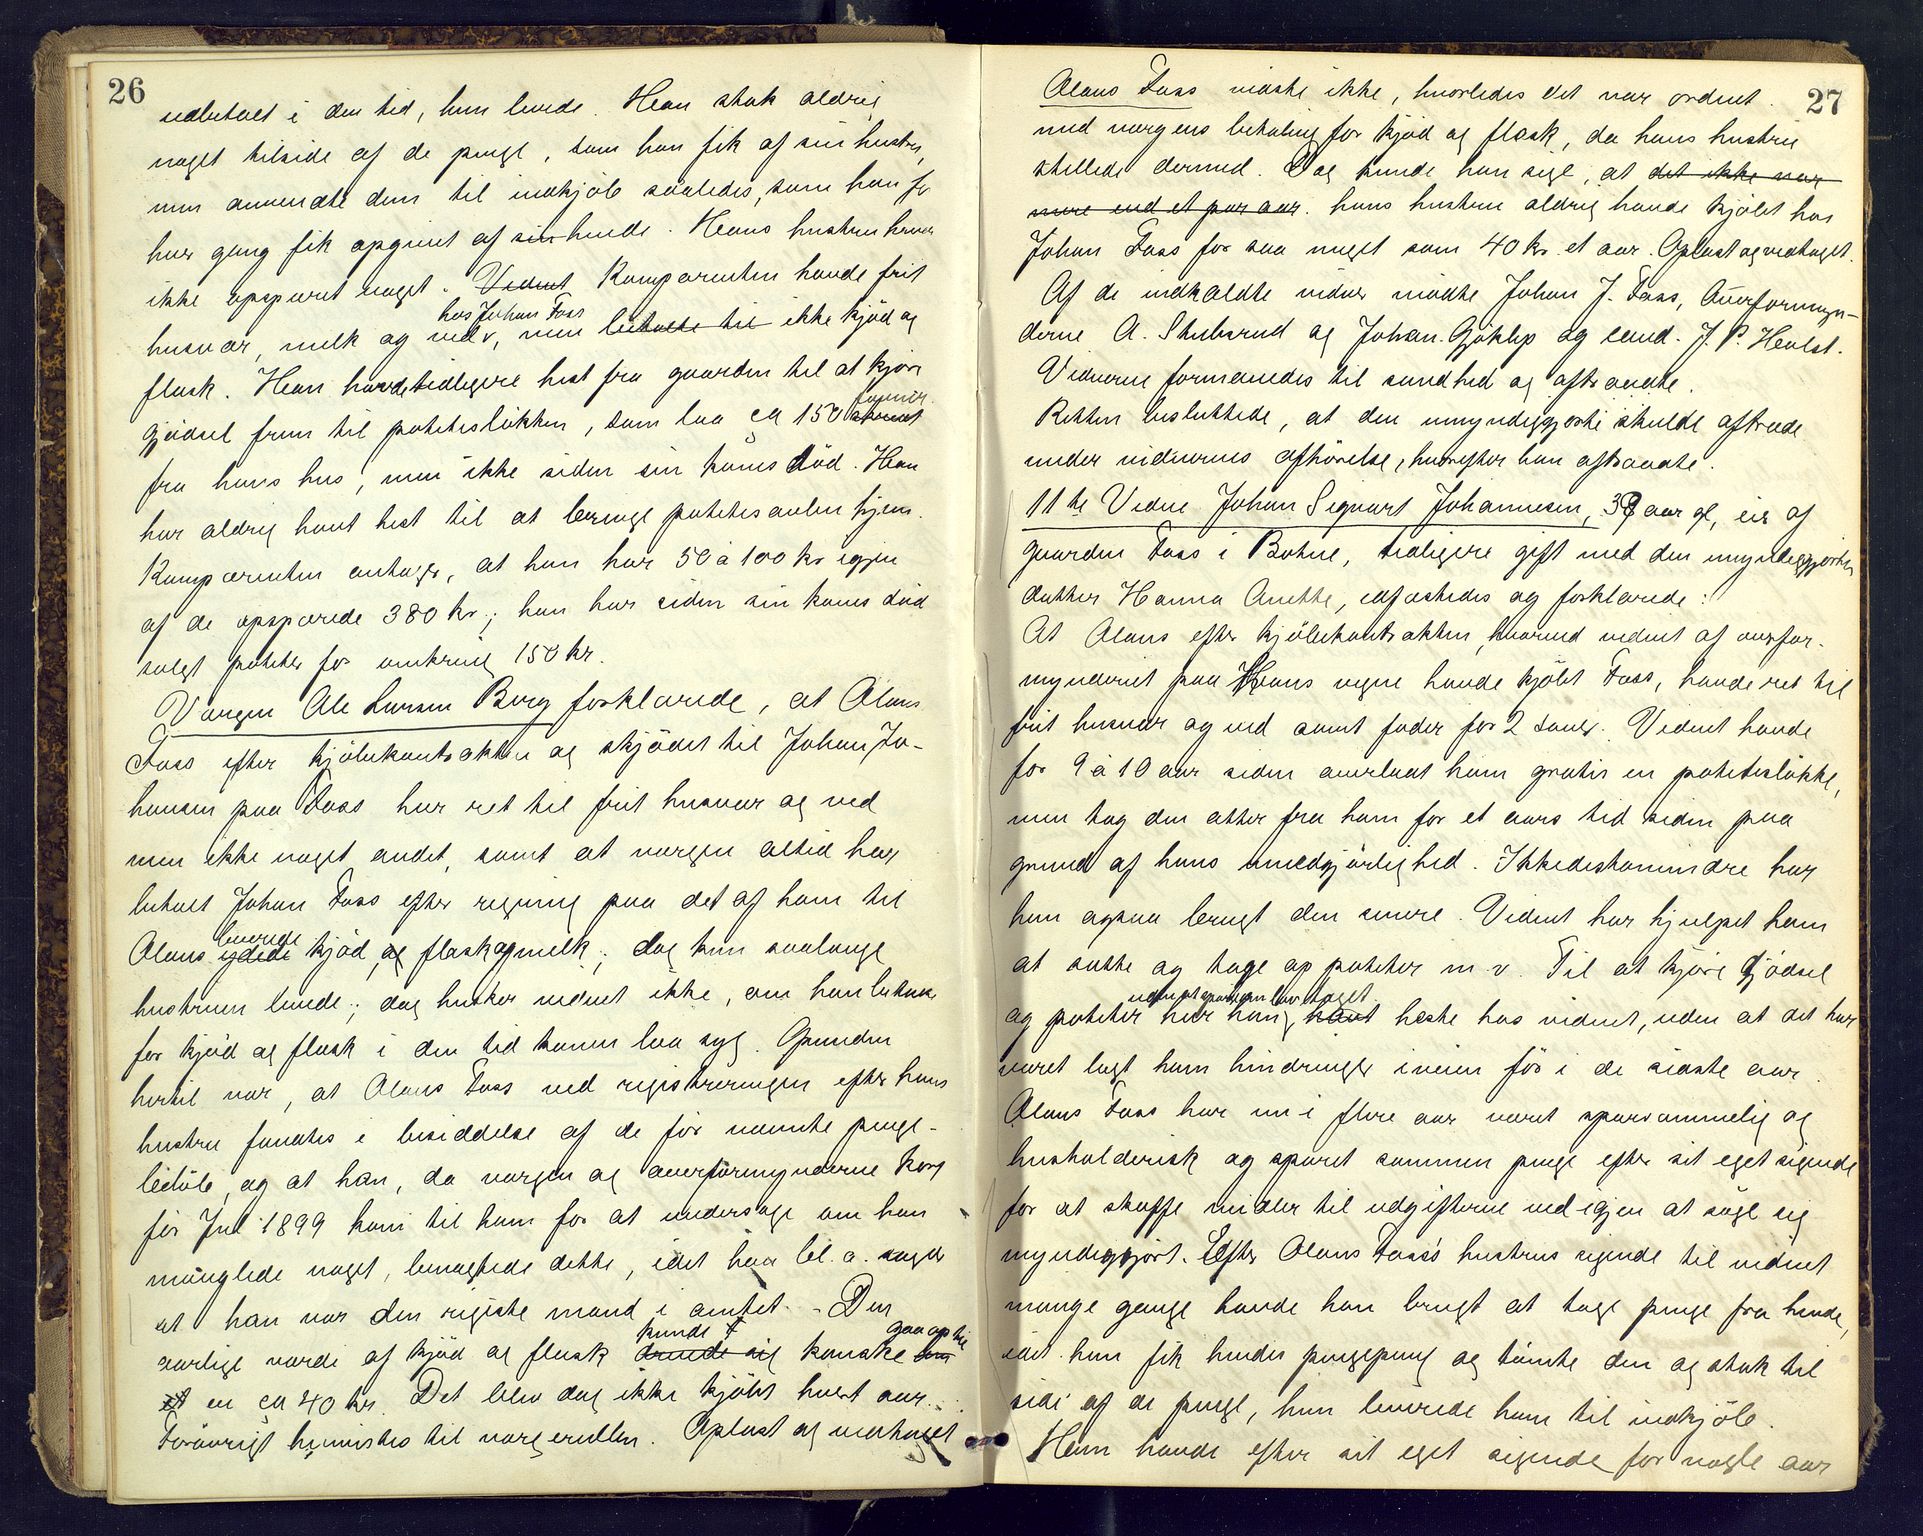 26
udbetalt i den tid, hun levede. Han stak aldrig
noget tilside af de penge, som han fik af sin hustru,
men anvendte dem til indkjöb saaledes, som han for
hver gang fik opgivet af sin hende. Hans hustru har
ikke opsparet noget. Vidnet Komparenten havde frit
hos Johan Foss
husvær, melk og ved, men betalte til ikke kjöd og
flesk. Han havde tidligere hest fra gaarden til at kjöre
favner
gjödsel frem til poteteslökken, som laa ca 150 skridt
fra hans hus, men ikke siden sin kones död. Han
har aldrig havt hest til at bringe potetesavlen hjem.
Komparenten antager, at han har 50 à 100 kr igjen
af de opsparede 380 kr; han har siden sin kones död
solgt poteter for omkring 150 kr.
Vergen Ole Larsen Berg forklarede, at Olaus
Foss efter kjöbekontrakten og skjödet til Johan Jo-
hansen paa Foss har ret til frit husvær og ved
men ikke noget andet, samt at vergen altid har
betalt Johan Foss efter regning paa det af ham til
leverede
Olaus ydede kjöd, og flesk og melk; dog kun saalænge
hustruen levede; dog husker vidnet ikke, om han betalte
for kjöd og flesk i den tid konen laa syg. Grunden
hertil var, at Olaus Foss ved registreringen efter hans
hustru fandtes i besiddelse af de för nævnte penge-
belöb, og at han, da vergen og overformynderne kort
för Jul 1899 kom til ham for at undersöge om han
manglede noget, benegtede dette, idet han bl. a. sagde
at han var den rigeste mand i amtet. - Den
kunde gaa op til
aarlige værdi af kjöd og flesk dreiede sig kanske om
et en ca 40 kr. Det blev dog ikke kjöbt hvert aar.
Forövrigt henvistes til vergerullen. Oplæst og vedtaget

27
Olaus Foss vidste ikke, hvorledes det var ordnet
med vergens betaling for kjöd og flesk, da hans hustru
stellede dermed. Dog kunde han sige, at det ikke var
mere end et par aar. hans hustru aldrig havde kjöbt hos
Johan Foss for saa meget som 40 kr. et aar. Oplæst og vedtaget.
Af de indkaldte vidner mödte Johan J. Foss, Overformyn-
derne A. Stubsrud og Johan Gjöklep og cand. J. P. Holst.
Vidnerne formanedes til sandhed og aftraadte.
Retten besluttede, at den umyndiggjorte skulde aftræde
under vidnernes afhörelse, hvorefter han aftraadte.
11te Vidne Johan Sigvart Johannesen, 38 aar gl, eier af
gaarden Foss i Botne, tidligere gift med den umyndiggjortes
datter Hanna Anette, edfæstedes og forklarede:
At Olaus efter kjöbekontrakten, hvorved vidnet af overfor-
mynderiet paa Hans vegne havde kjöbt Foss, havde ret til
frit husvær og ved samt foder for 2 sauer. Vidnet havde
for 9 à 10 aar siden overladt ham gratis en potetslökke,
men tog den atter fra ham for et aars tid siden paa
grund af hans umedgjörlighed. Ikkedestomindre har
han ogsaa brugt den senere. Vidnet har hjulpet ham
at sætte og tage op poteter m. v. Til at kjöre Gjödsel
og poteter har han havt heste hos vidnet, uden at det har
været lagt ham hindringer iveien för i de sidste aar.
Olaus Foss har nu i flere aar været sparsommelig og
husholderisk og sparet sammen penge efter sit eget sigende
for at skaffe midler til udgifterne ved igjen at söge sig
myndiggjort. Efter Olaus Foss's hustrus sigende til vidnet
mange gange havde han brugt at tage penge fra hende,
idet han fik hendes pengepung og tömte den og stak til
side af de penge, hun leverede ham til indkjöb.
Han havde efter sit eget sigende for nogle aar